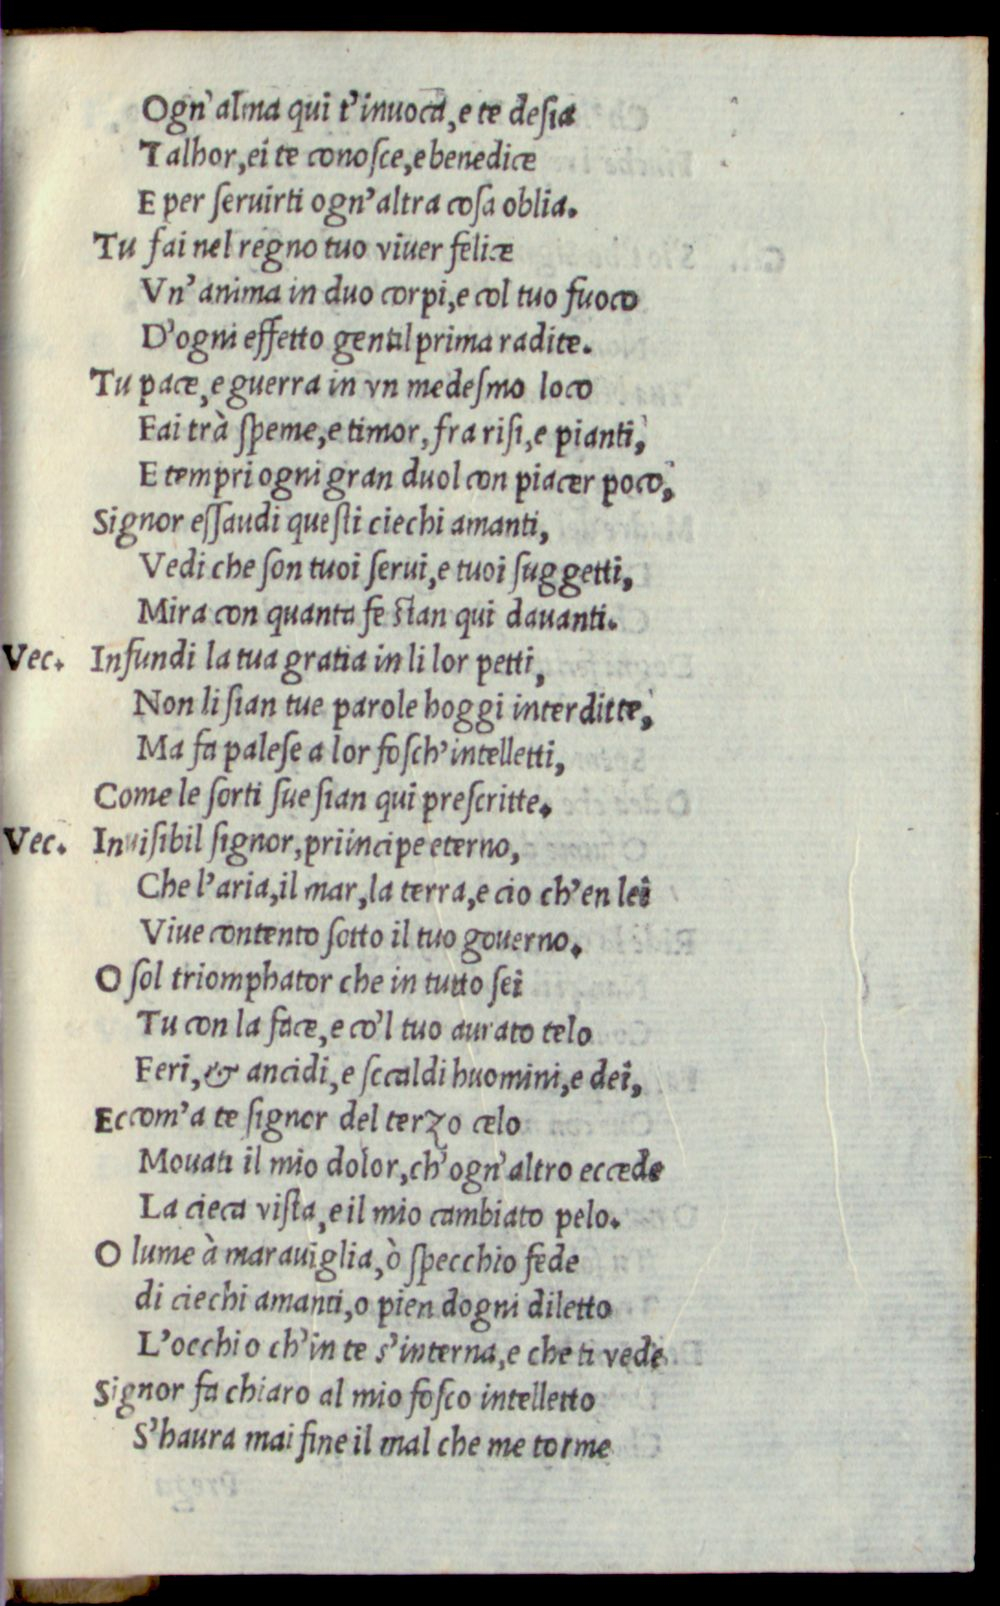 Ogn'alma qui t'inuoca, e te desia
Talhor, ei te conosce, e benedice
E per seruirti ogn'altra cosa oblia.
Tu fai nel regno tuo viuer felice
Vn'anima in duo corpi, e col tuo fuoco
D'ogni effetto gentil prima radice.
Tu pace, e guerra in vn medesmo loco
Fai trà speme, e timor, fra risi, e pianti,
E tempri ogni gran duol con piacer poco,
Signor essaudi questi ciechi amanti,
Vedi che son tuoi serui, e tuoi suggetti,
Mira con quanta fe stan qui dauanti.
Vec. Infundi la tua gratia in li lor petti,
Non li sian tue parole hoggi interditte,
Ma fa palese a lor fosch'intelletti,
Come le sorti sue sian qui prescritte.
Vec. Inuisibil signor, priincipe eterno,
Che l'aria, il mar, la terra, e cio ch'en lei
Viue contento sotto il tuo gouerno.
O sol triomphator che in tutto sei
Tu con la face, e co'l tuo aurato telo
Feri, & ancidi, e sccaldi huomini, e dei,
Eccom'a te signor del terzo celo
Mouati il mio dolor, ch'ogn'altro eccede
La cieca vista, e il mio cambiato pelo.
O lume à marauiglia, ò specchio fede
di ciechi amanti, o pien dogni diletto
L'occhio ch'in te s'interna, e che ti vede
Signor fa chiaro al mio fosco intelletto
S'haura mai fine il mal che me torme